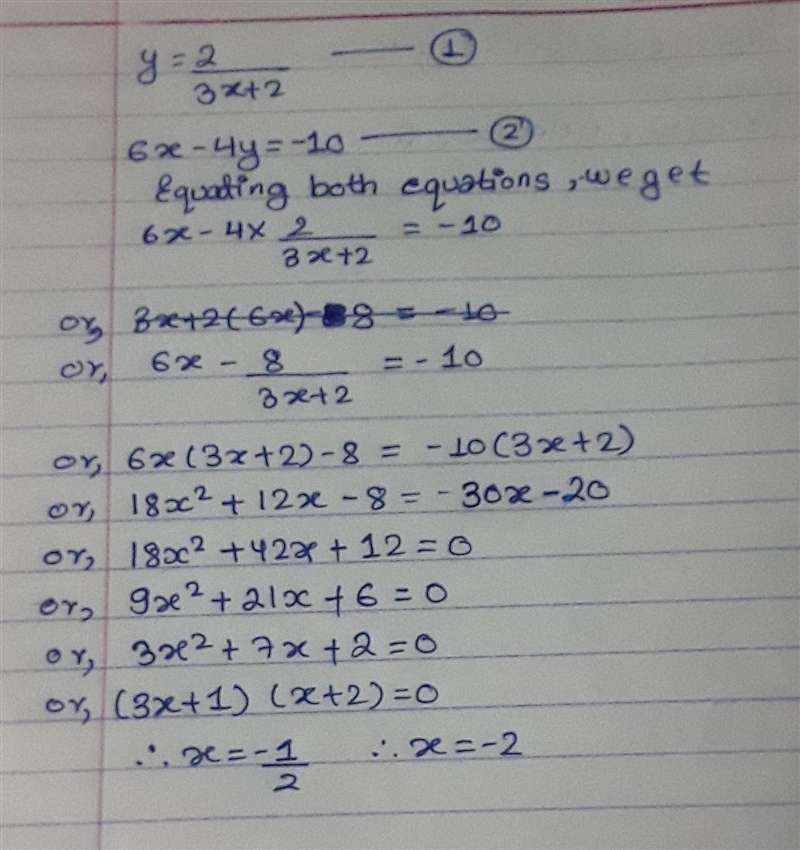 y = 2/(3x+2) —— ①
6x - 4y = -10 —— ②
Equating both equations, we get
6x - 4 × 2/(3x+2) = -10
or, 3x+2(6x) - 8 = -10
or, 6x - 8/(3x+2) = -10
or, 6x(3x+2) - 8 = -10(3x+2)
or, 18x² + 12x - 8 = -30x - 20
or, 18x² + 42x + 12 = 0
or, 9x² + 21x + 6 = 0
or, 3x² + 7x + 2 = 0
or, (3x+1) (x+2) = 0
∴ x = -1/2 ∴ x = -2